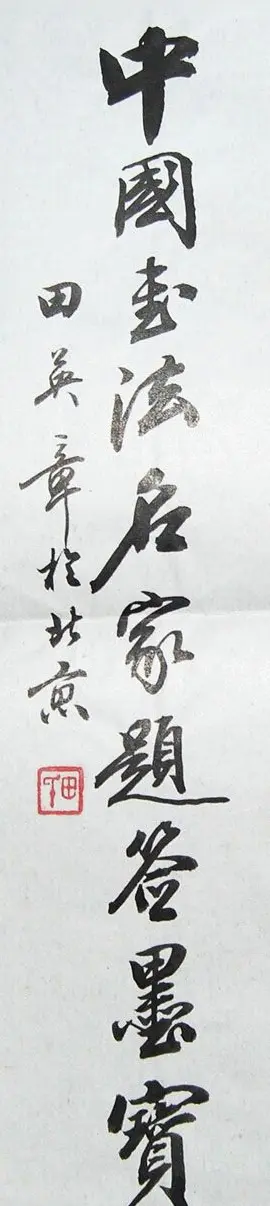 中國书法名家題签墨寶
田英章於北京